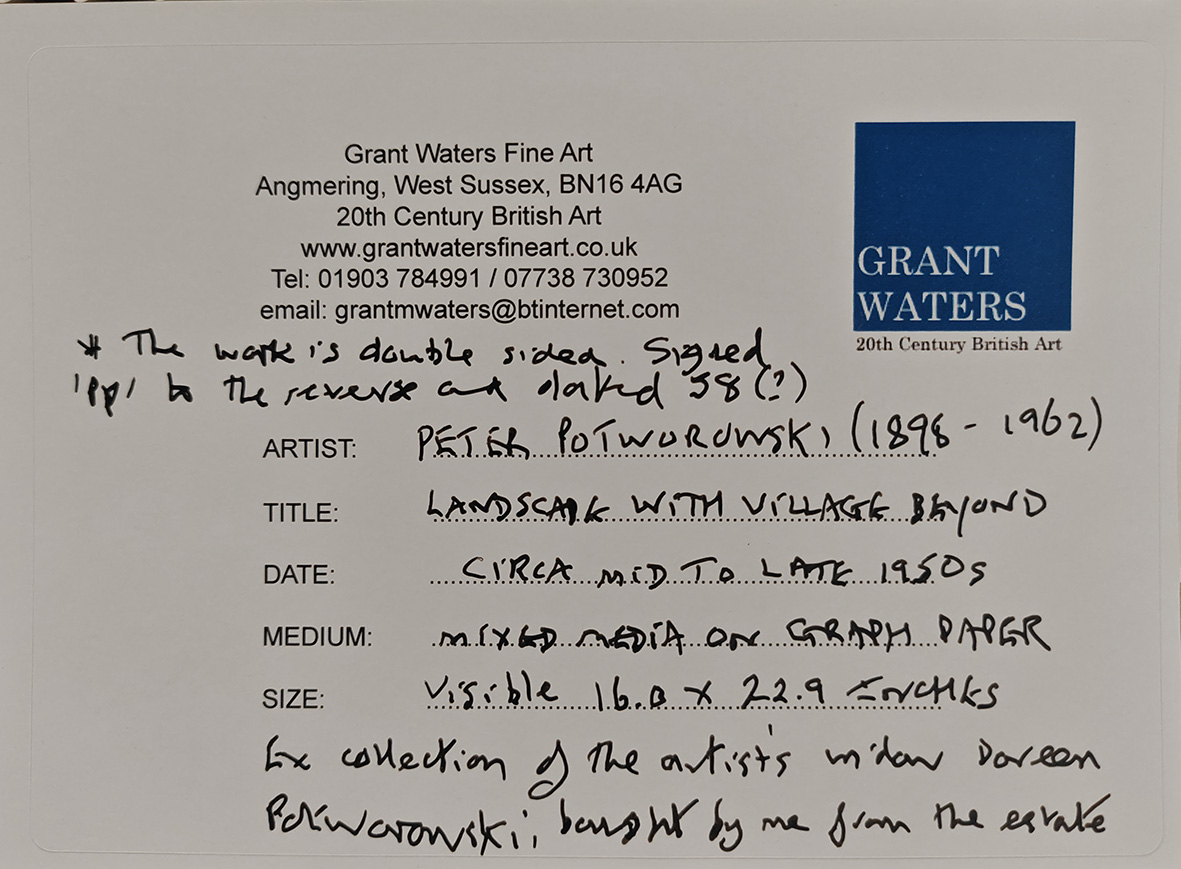 Grant Waters Fine Art
Angmering, West Sussex, BN16 4AG
20th Century British Art
www.grantwatersfineart.co.uk
Tel: 01903 784991 / 07738 730952
email: grantmwaters@btinternet.com
GRANT
WATERS
20th Century British Art
* The work is double sided. Signed
'PP' to the reverse and dated 58 (?)
ARTIST: PETER POTWOROWSKI (1898 - 1962)
TITLE: LANDSCAPE WITH VILLAGE BEYOND
DATE: CIRCA MID TO LATE 1950s
MEDIUM: MIXED MEDIA ON GRAPH PAPER
SIZE: Visible 16.0 x 22.9 INCHES
Ex collection of the artist's widow Doreen
Potworowski, bought by me from the estate